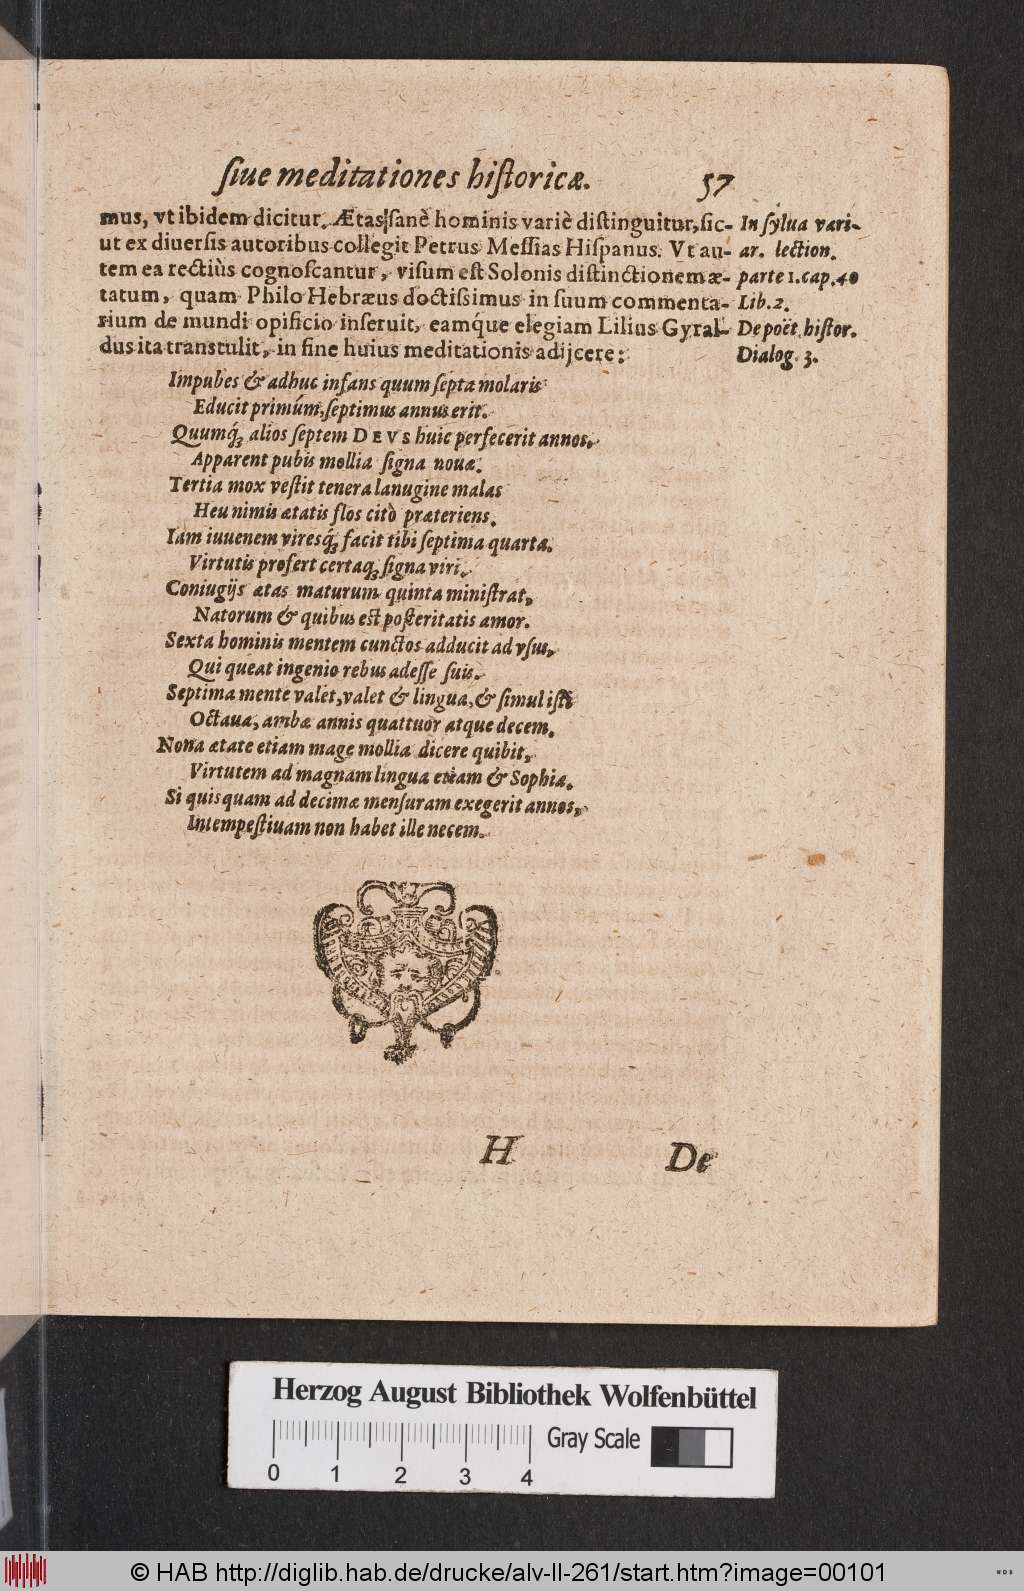 ſiue meditationes hiſtoricæ. 57
mus, vt ibidem dicitur. Ætas ſanè hominis variè diſtinguitur, ſic-
ut ex diuerſis autoribus collegit Petrus Meſſias Hiſpanus. Vt au-
tem ea rectiùs cognoſcantur, viſum eſt Solonis diſtinctionem æ-
tatum, quam Philo Hebræus doctiſsimus in ſuum commenta-
rium de mundi opificio inſeruit, eamq́ue elegiam Lilius Gyral-
dus ita transtulit, in fine huius meditationis adijcere:
In ſylua vari-
ar. lection.
parte 1. cap. 40
Lib. 2.
De poët. hiſtor.
Dialog. 3.
Impubes & adhuc infans quum ſepta molaris
Educit primúm, ſeptimus annus erit.
Quumq́; alios ſeptem DEVS huic perfecerit annos,
Apparent pubis mollia ſigna nouæ.
Tertia mox veſtit tenera lanugine malas
Heu nimis ætatis flos citò præteriens.
Iam iuuenem viresq́; facit tibi ſeptima quarta.
Virtutis profert certaq; ſigna viri.
Coniugijs ætas maturum quinta miniſtrat,
Natorum & quibus eſt poſteritatis amor.
Sexta hominis mentem cunctos adducit ad vſus,
Qui queat ingenio rebus adeſſe ſuis.
Septima mente valet, valet & lingua, & ſimul iſti
Octaua, ambæ annis quattuor atque decem.
Nona ætate etiam mage mollia dicere quibit,
Virtutem ad magnam lingua etiam & Sophia.
Si quisquam ad decimæ menſuram exegerit annos,
Intempeſtiuam non habet ille necem.
H De
Herzog August Bibliothek Wolfenbüttel
Gray Scale
0 1 2 3 4
© HAB http://diglib.hab.de/drucke/alv-ll-261/start.htm?image=00101